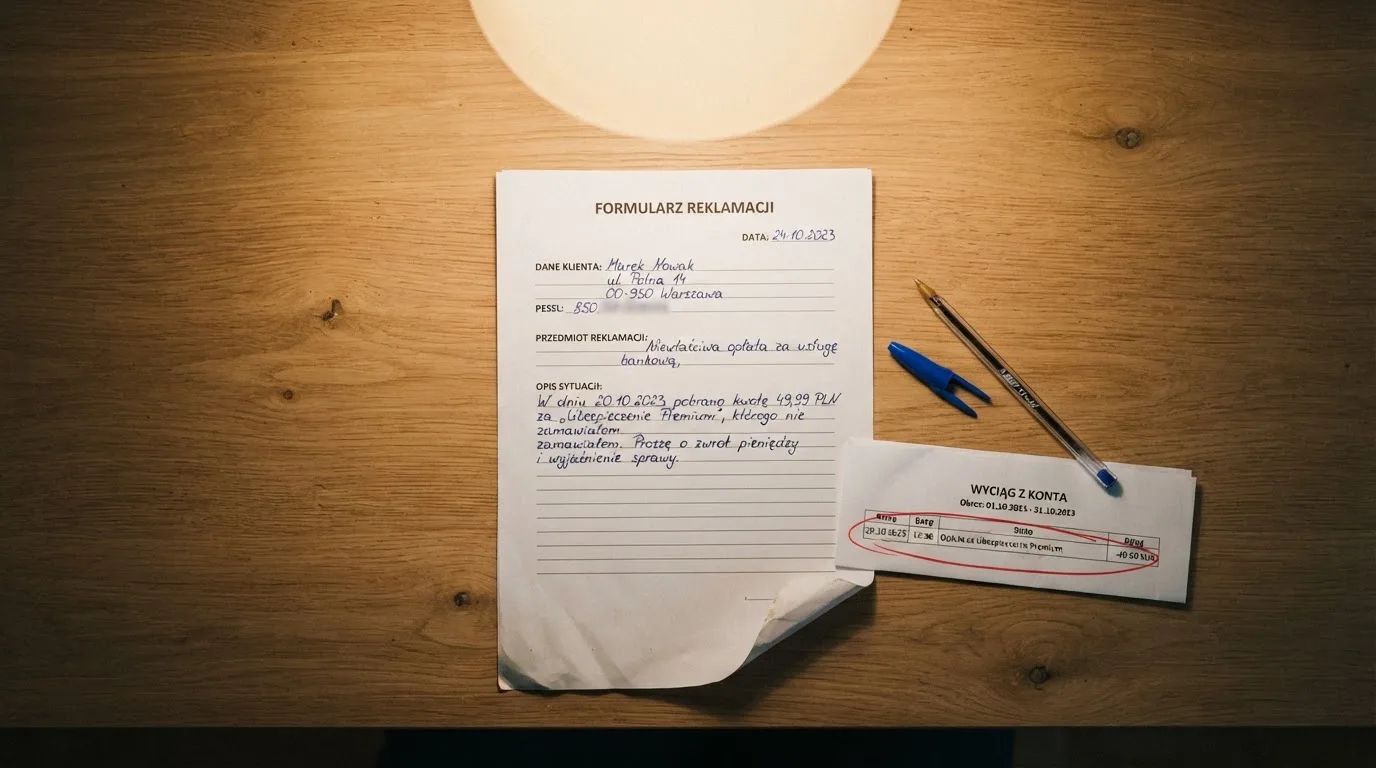 FORMULARZ REKLAMACJI
DATA: 24.10.2023
DANE KLIENTA: Marek Nowak
ul. Polna 14
00-950 Warszawa
PESEL: 850
PRZEDMIOT REKLAMACJI: Niewłaściwa opłata za usługę
bankową,
OPIS SYTUACJI:
W dniu 20.10.2023 pobrano kwotę 49,99 PLN
za „Ubezpieczenie Premium", którego nie
zamawiałom
zamawiałem. Proszę o zwrot pieniędzy
i wyjaśnienie sprawy.
WYCIĄG Z KONTA
Okres: 01.10 - 31.10.2023
Premium